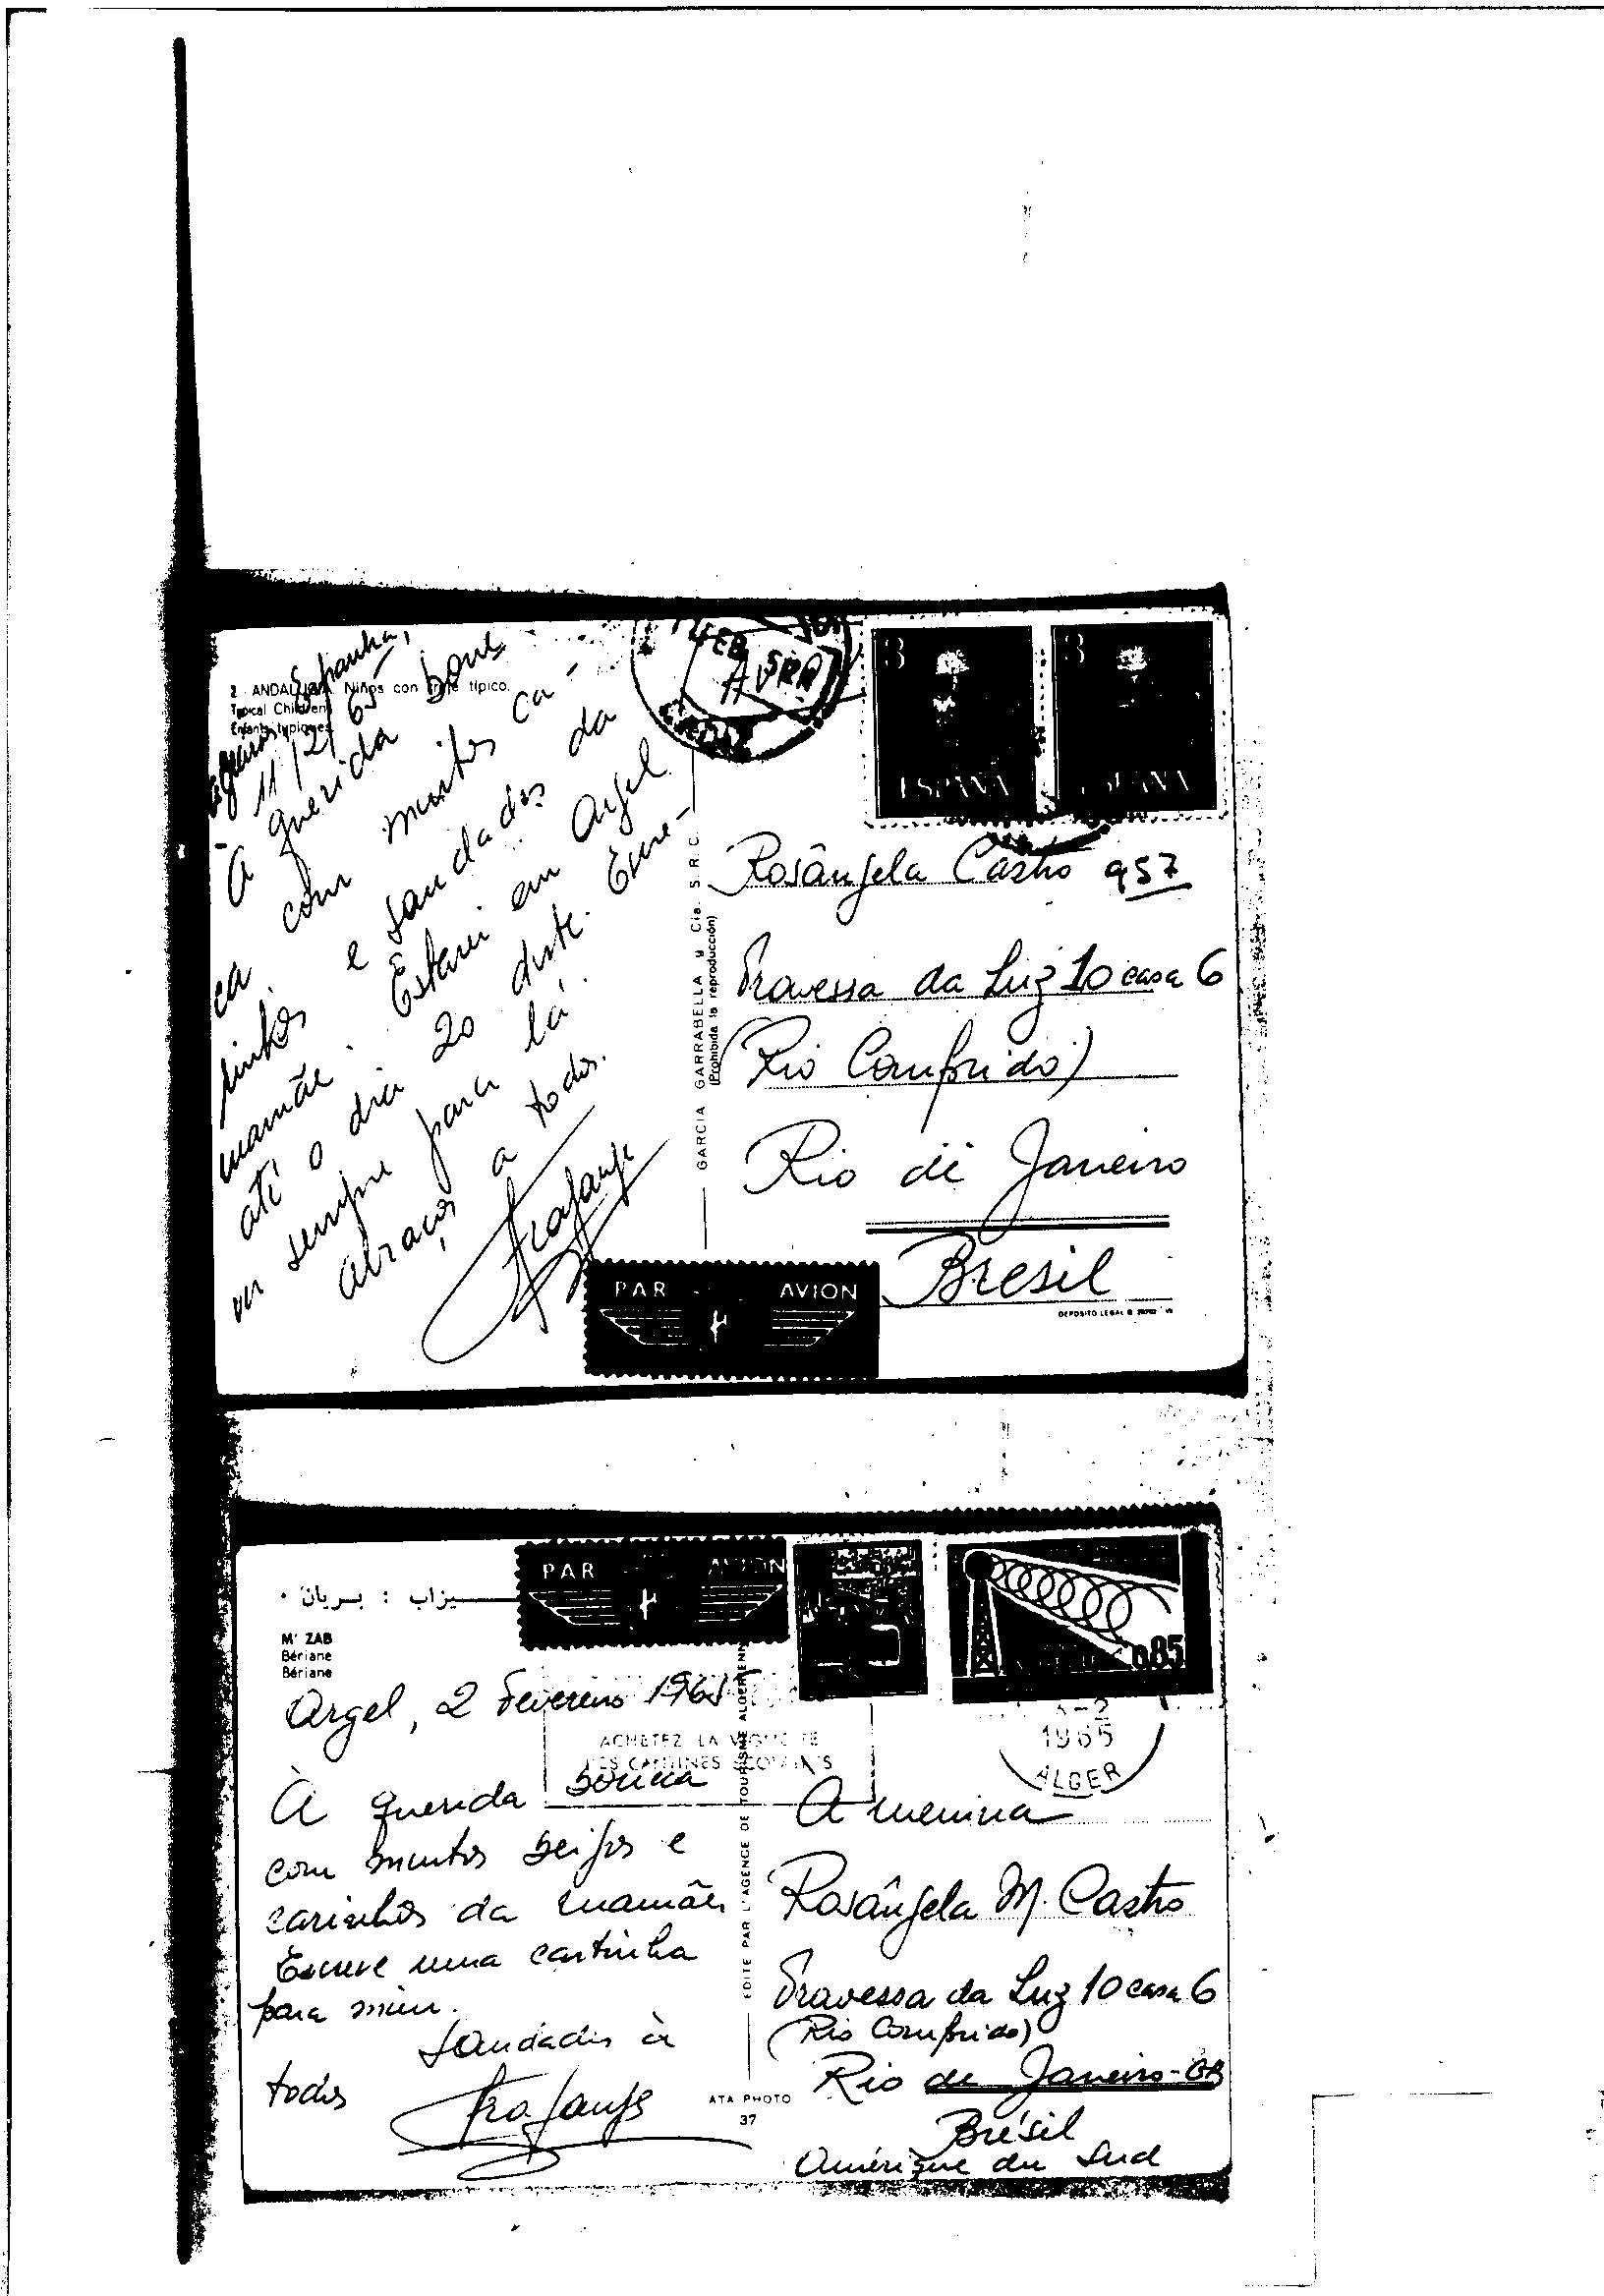 2 - ANDALUCIA Niños con traje típico.
Typical Children
Enfants typiques
Espanha,
11/2/65
À querida boneca
com muitos carinhos
e saudades da
mamãe. Estarei em Argel
até o dia 20 deste. Escreva
sempre para lá.
Abraços a todos.
FEB
GARCIA GARRABELLA y Cia. S. R. C.
(Prohibida la reproducción)
3
3
ESPAÑA
ESPAÑA
Rosângela Castro 957
Travessa da Luz 10 casa 6
(Rio Comprido)
Rio de Janeiro
Bresil
PAR AVION
DEPOSITO LEGAL B.
ميزاب : بريان .
M' ZAB
Bériane
Bériane
PAR AVION
0.85
Argel, 2 Fevereiro 1965
ACHETEZ LA VIGNETTE
DES CANTINES SCOLAIRES
2
1965
ALGER
À querida boneca
com muitos beijos e
carinhos da mamãe
Escreve uma cartinha
para mim.
Saudades à
todos
EDITE PAR L'AGENCE DE TOURISME ALGERIENNE
ATA PHOTO
37
A menina
Rosângela M. Castro
Travessa da Luz 10 casa 6
(Rio Comprido)
Rio de Janeiro-GB
Brésil
Amérique du Sud